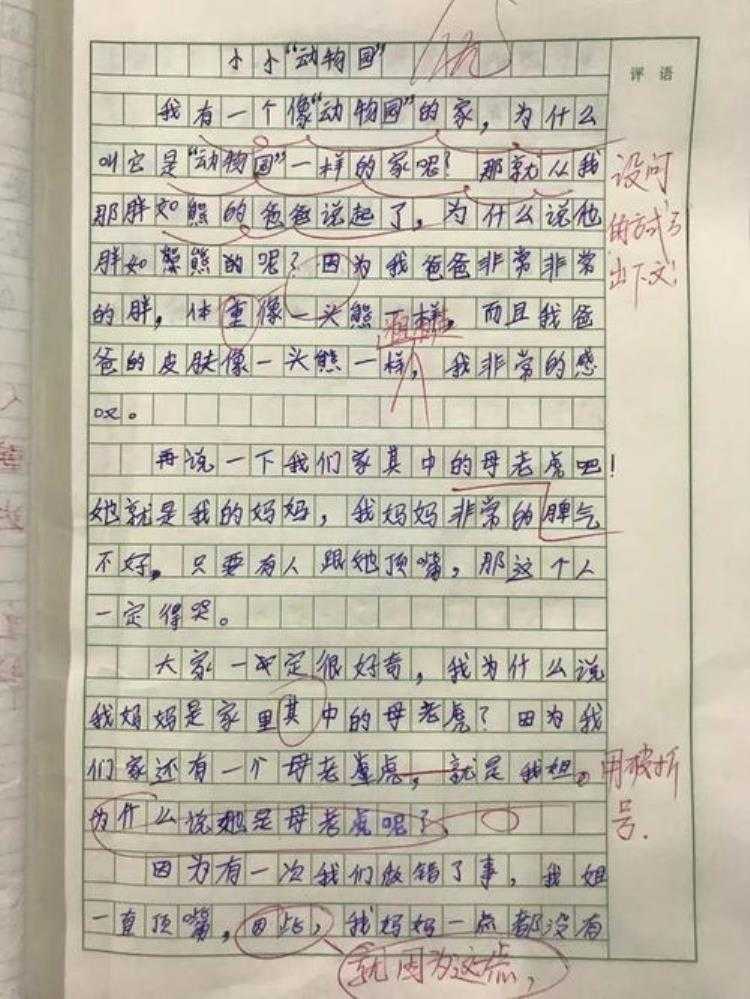 小小“动物园”
评语
我有一个像“动物园”的家，为什么
叫它是“动物园”一样的家呢？那就从我
那胖如熊的爸爸说起了，为什么说他
胖如熊的呢？因为我爸爸非常非常
的胖，体重像一头熊一样，而且我爸
爸的皮肤像一头熊一样，我非常的感
叹。
设问
的方式引
出下文！
粗糙
再说一下我们家其中的母老虎吧！
她就是我的妈妈，我妈妈非常的脾气
不好，只要有人跟她顶嘴，那这个人
一定得哭。
大家一定很好奇，我为什么说
我妈妈是家里其中的母老虎？因为我
们家还有一个母老虎，就是我姐。
用破折
号．
为什么说她是母老虎呢？
因为有一次我们做错了事，我姐
一直顶嘴，因此，我妈妈一点都没有
就因为这点，